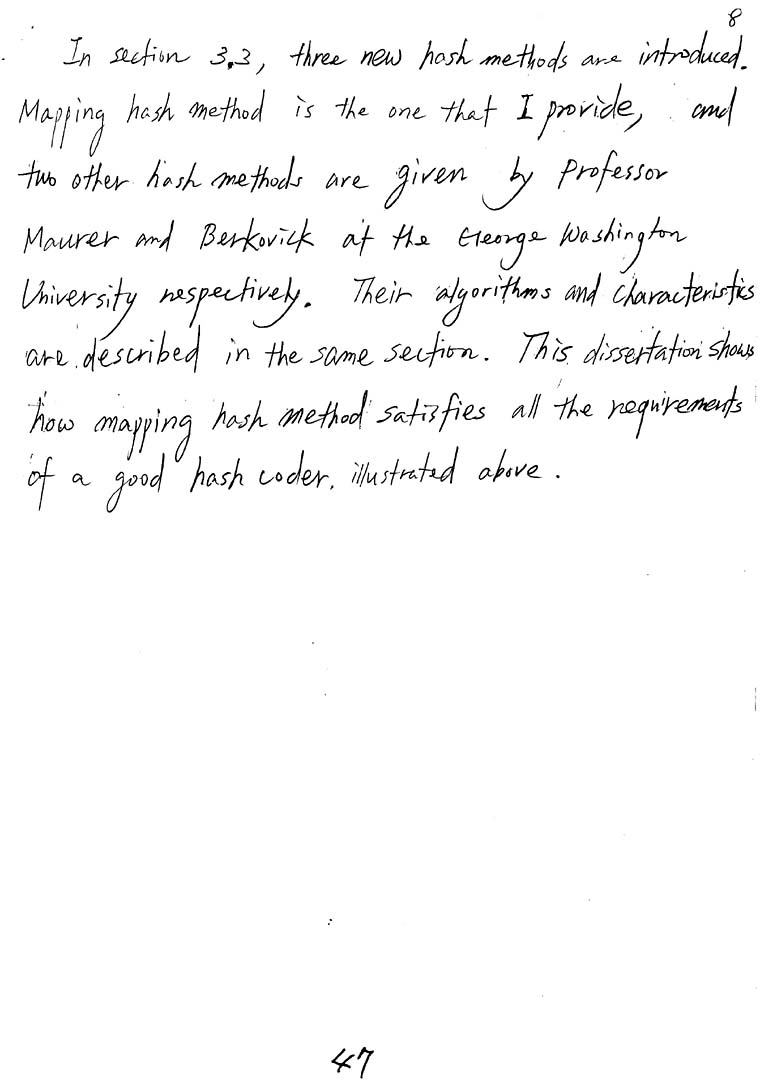 8
In section 3.3, three new hash methods are introduced.
Mapping hash method is the one that I provide, and
two other hash methods are given by Professor
Maurer and Berkovick at the George Washington
University respectively. Their algorithms and characteristics
are described in the same section. This dissertation shows
how mapping hash method satisfies all the requirements
of a good hash coder, illustrated above.
47